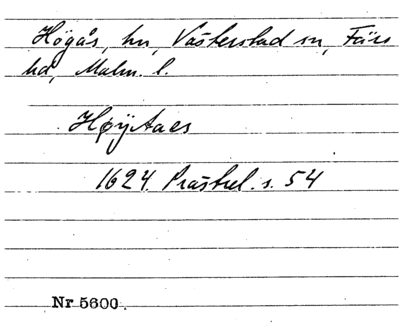 Högås, hn, Västerstad sn, Färs
hd, Malm. l.
HøyAaes
1624. Prästrel. s. 54
Nr 5600.